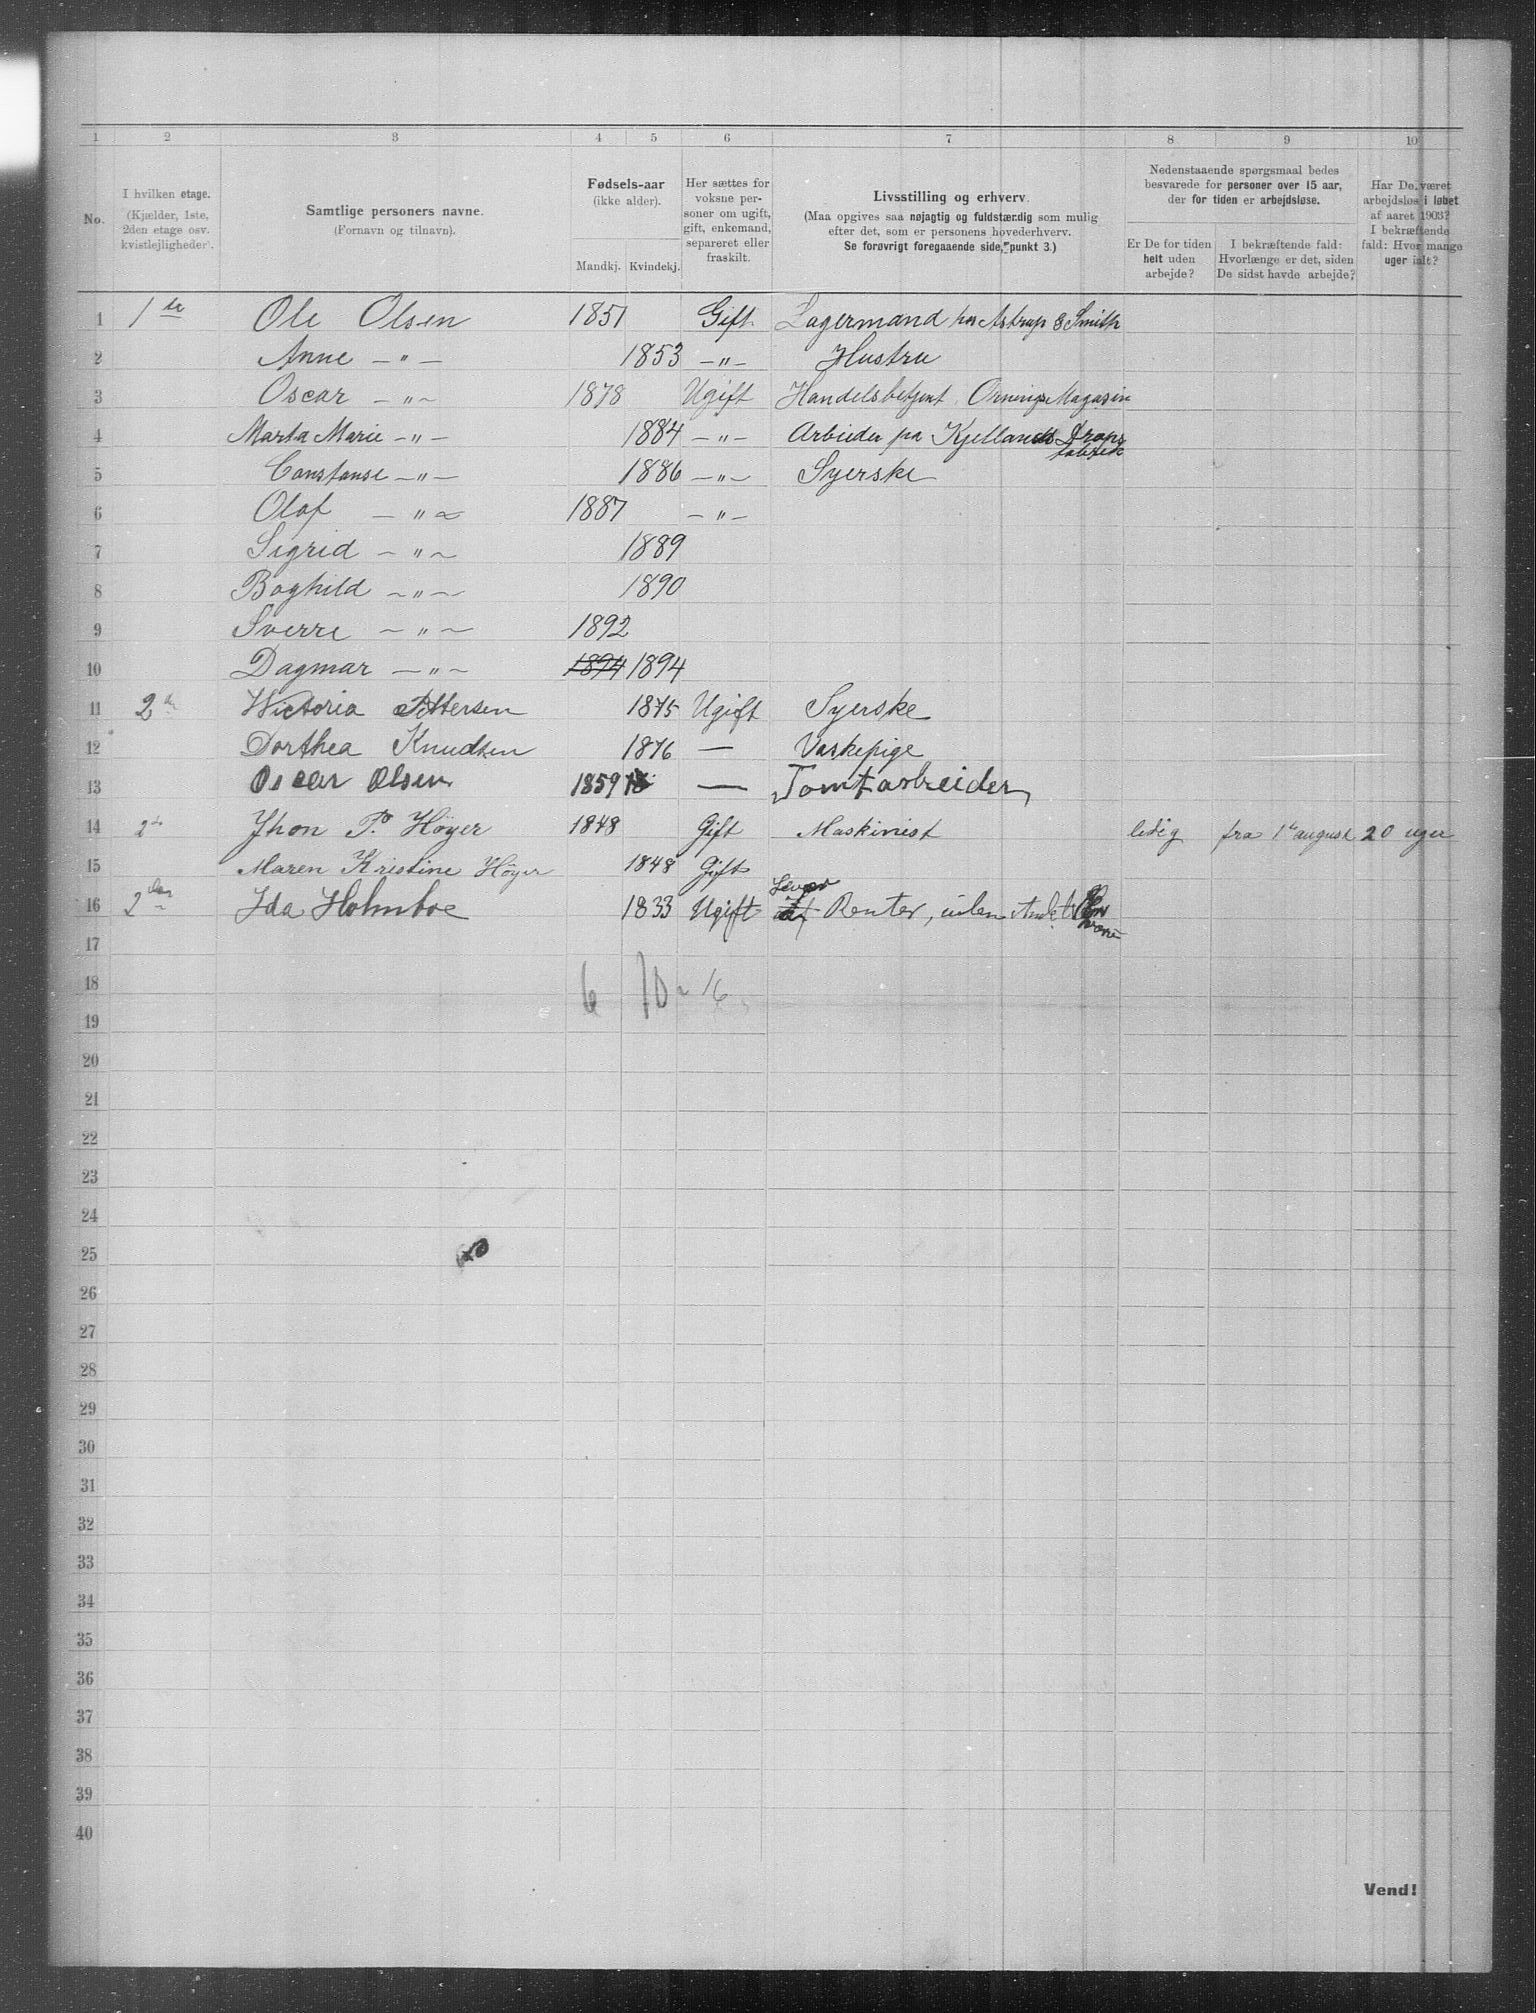 1 2 3 4 5 6 7 8 9 10
No.
I hvilken etage.
(Kjælder, 1ste,
2den etage osv.
kvistlejligheder).
Samtlige personers navne.
(Fornavn og tilnavn).
Fødsels-aar
(ikke alder).
Mandkj. Kvindekj.
Her sættes for
voksne per-
soner om ugift,
gift, enkemand,
separeret eller
fraskilt.
Livsstilling og erhverv.
(Maa opgives saa nøjagtig og fuldstændig som mulig
efter det, som er personens hovederhverv.
Se forøvrigt foregaaende side, punkt 3.)
Nedenstaaende spørgsmaal bedes
besvarede for personer over 15 aar,
der for tiden er arbejdsløse.
Er De for tiden
helt uden
arbejde?
I bekræftende fald:
Hvorlænge er det, siden
De sidst havde arbejde?
Har De været
arbejdsløs i løbet
af aaret 1903?
I bekræftende
fald: Hvor mange
uger ialt?
1 1ste Ole Olsen 1851 Gift Lagermand hos Astrup & Smith
2 Anne —"— 1853 —"— Hustru
3 Oscar —"— 1878 Ugift Handelsbetjent, Magasin
4 Marta Marie —"— 1884 —"— Arbieder pa Kjellands Drops
fabrik
5 Constanse —"— 1886 —"— Syerske
6 Olaf —"— 1887 —"—
7 Sigrid —"— 1889
8 Boghild —"— 1890
9 Sverre —"— 1892
10 Dagmar —"— 1894 1894
11 2 Wictoria Pettersen 1875 Ugift Syerske
12 Dorthea Knudsen 1876 — Vaskepige
13 Oscar Olsen 1859 — Tomtarbreider
14 2 Jhon P. Höyer 1848 Gift Maskinist ledig fra 1te august 20 uger
15 Maren Kristine Höyer 1848 Gift
16 2den Ida Holmboe 1833 Ugift Lever af Renter, uden Andet
17
18 6 10 - 16
19
20
21
22
23
24
25
26
27
28
29
30
31
32
33
34
35
36
37
38
39
40
Vend!